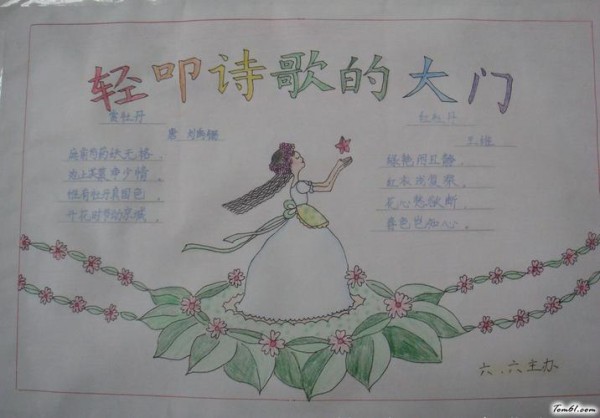 轻叩诗歌的大门
赏牡丹
唐 刘禹锡
庭前芍药妖无格，
池上芙蕖净少情。
惟有牡丹真国色，
花时节动京城。
红牡丹
王维
绿艳闲且静，
红衣浅复深。
花心愁欲断，
春色岂知心。
六.六主办
Tom61.com